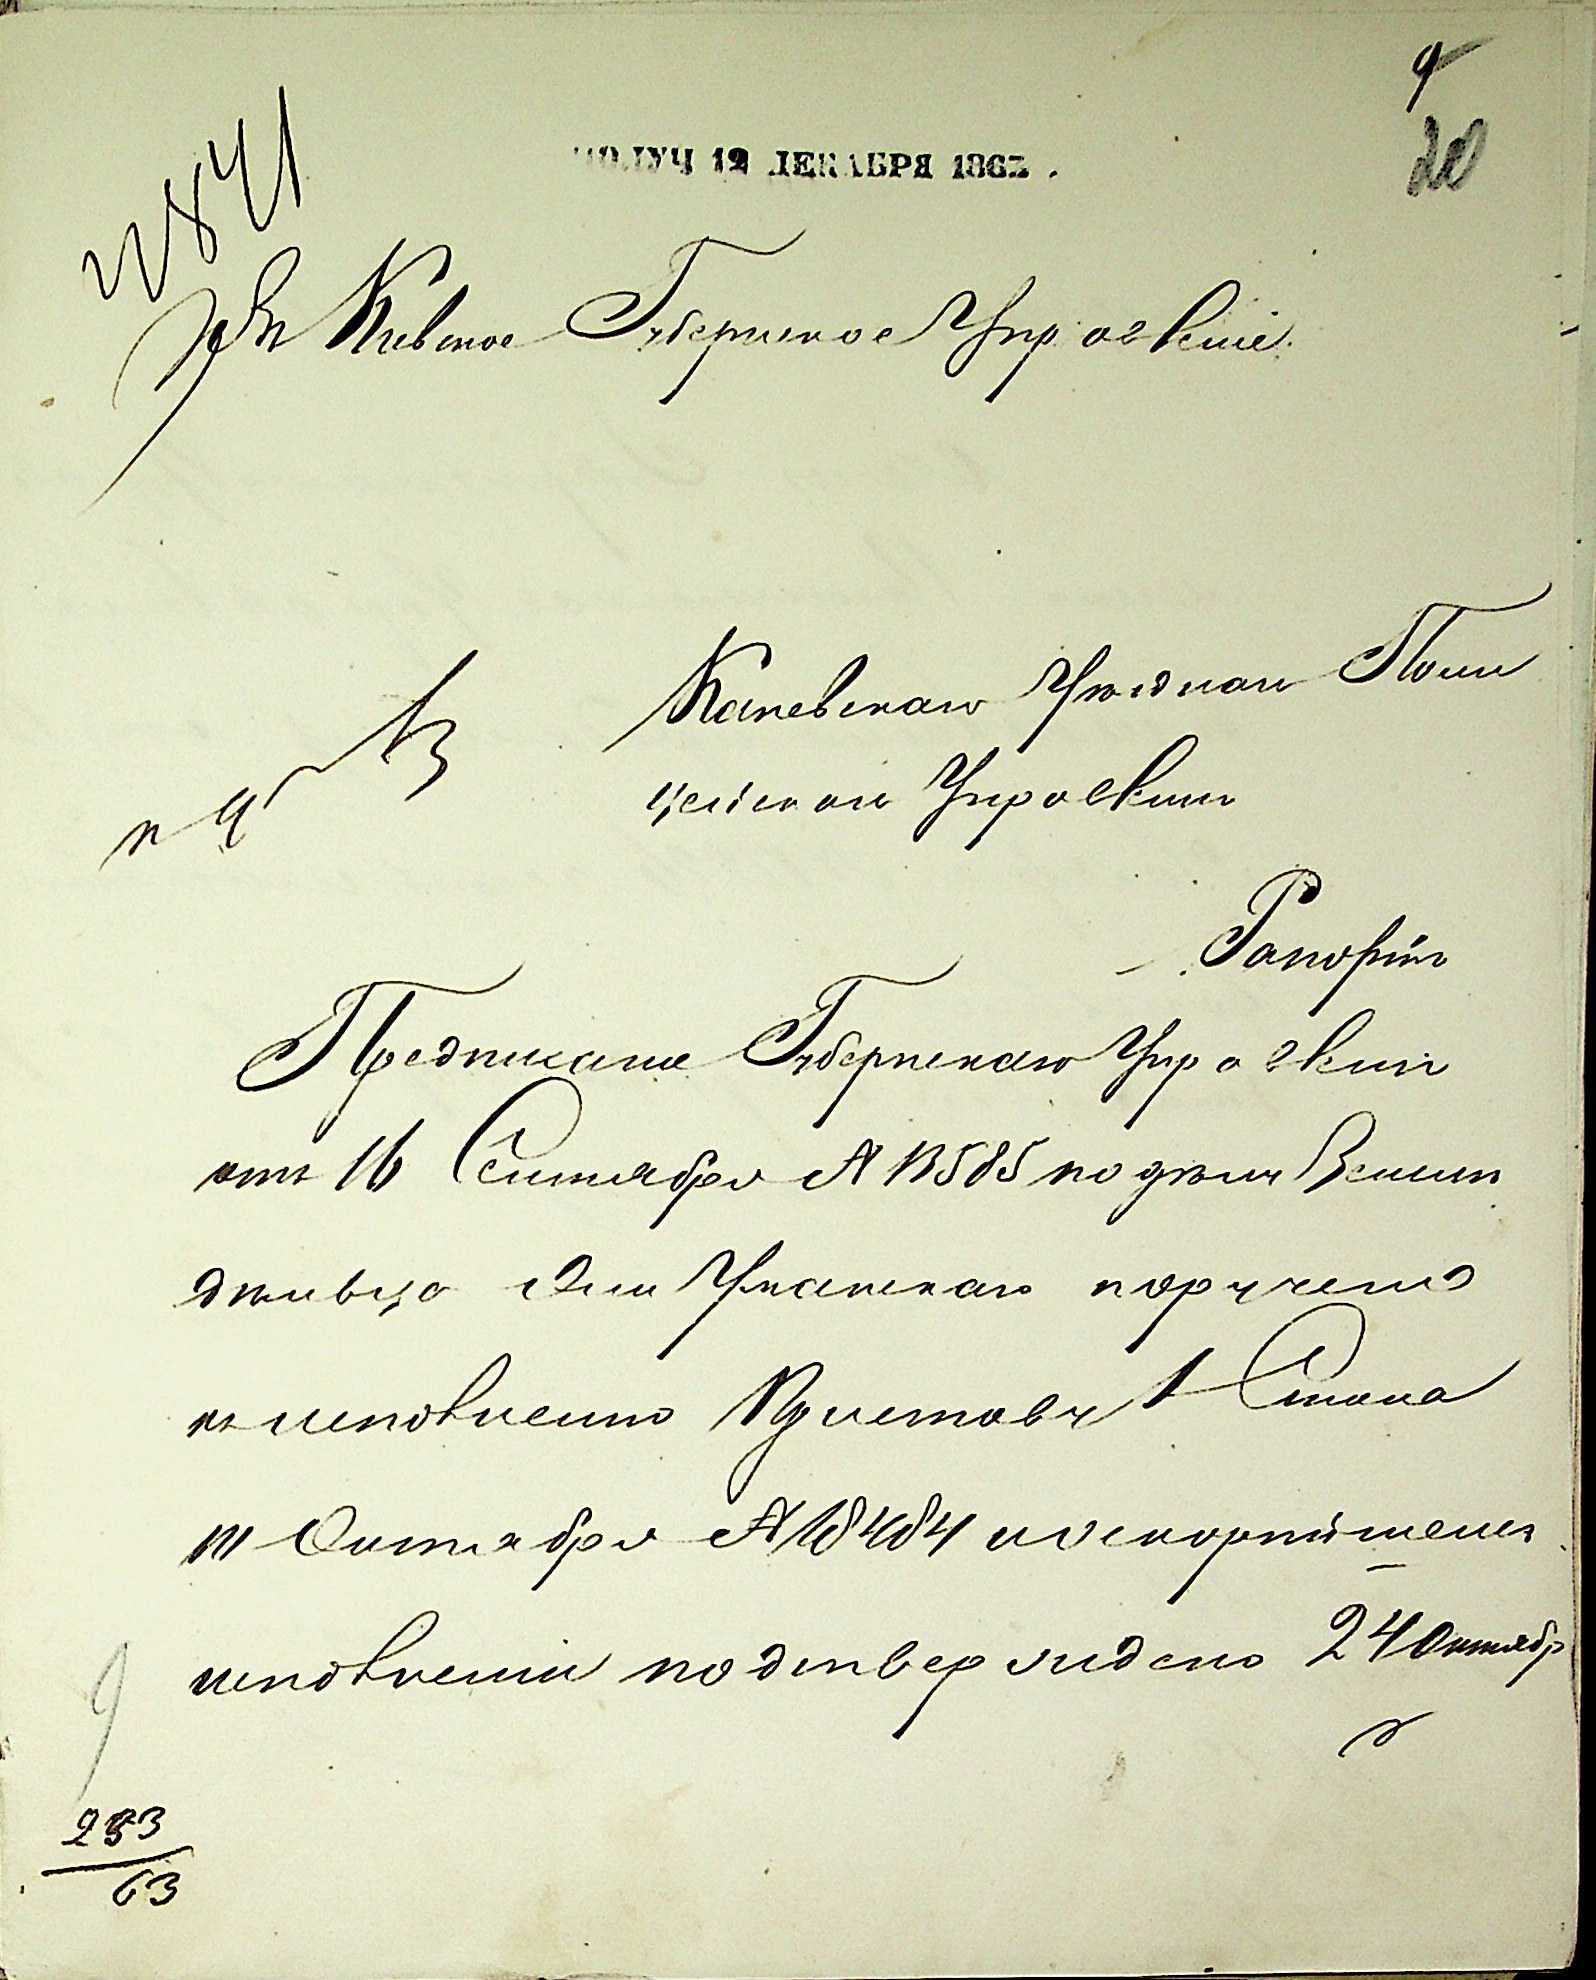 9
20
ПОЛУЧ 12 ДЕКАБРЯ 1863.
22841
Въ Киевское Губернское Управленіе
Каневскаго Уѣзднаго Поли
цейскаго Управленія
Рапортъ
Предписаніе Губернскаго Управленія
отъ 16 Сентября № 13585 по дѣлу Земле
дѣльца Уманскаго поручено
къ исполненію Приставу 1 Стана
11 Октября № 18484 и о скорѣйшемъ
исполненіи подтверждено 24 Октябр
283
63